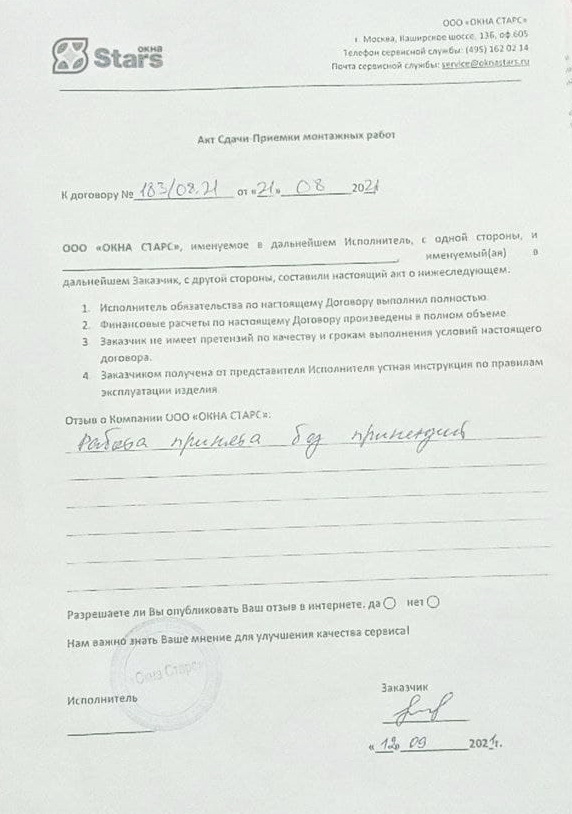 ООО «ОКНА СТАРС»
г. Москва, Каширское шоссе, 136, оф.605
Телефон сервисной службы: (495) 162 02 14
Почта сервисной службы: service@oknastars.ru
ОКНА
Stars
Акт Сдачи-Приемки монтажных работ
К договору № 183/08.21 от «21» 08 2021
ООО «ОКНА СТАРС», именуемое в дальнейшем Исполнитель, с одной стороны, и
, именуемый(ая) в
дальнейшем Заказчик, с другой стороны, составили настоящий акт о нижеследующем.
1. Исполнитель обязательства по настоящему Договору выполнил полностью.
2. Финансовые расчеты по настоящему Договору произведены в полном объеме.
3 Заказчик не имеет претензий по качеству и срокам выполнения условий настоящего
договора.
4. Заказчиком получена от представителя Исполнителя устная инструкция по правилам
эксплуатации изделия
Отзыв о Компании ООО «ОКНА СТАРС»:
Работа принята без принензий
Разрешаете ли Вы опубликовать Ваш отзыв в интернете. да нет
Нам важно знать Ваше мнение для улучшения качества сервиса!
«Окна Старс»
Исполнитель
Заказчик
«12» 09 2021г.